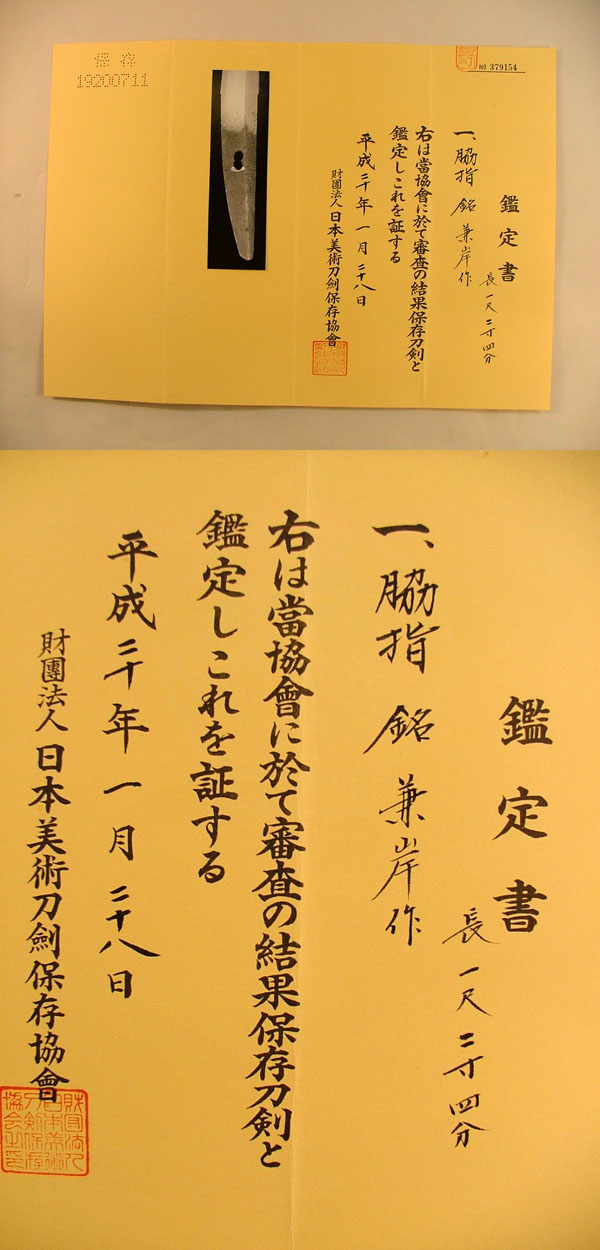 保存
19200711
№ 379154
鑑定書
一、脇指 銘 兼岸作
長一尺二寸四分
右は當協會に於て審査の結果保存刀剣と
鑑定しこれを証する
平成二十年一月二十八日
財團法人日本美術刀劍保存協會
鑑定書
一、脇指 銘 兼岸作
長一尺二寸四分
右は當協會に於て審査の結果保存刀剣と
鑑定しこれを証する
平成二十年一月二十八日
財團法人日本美術刀劍保存協會